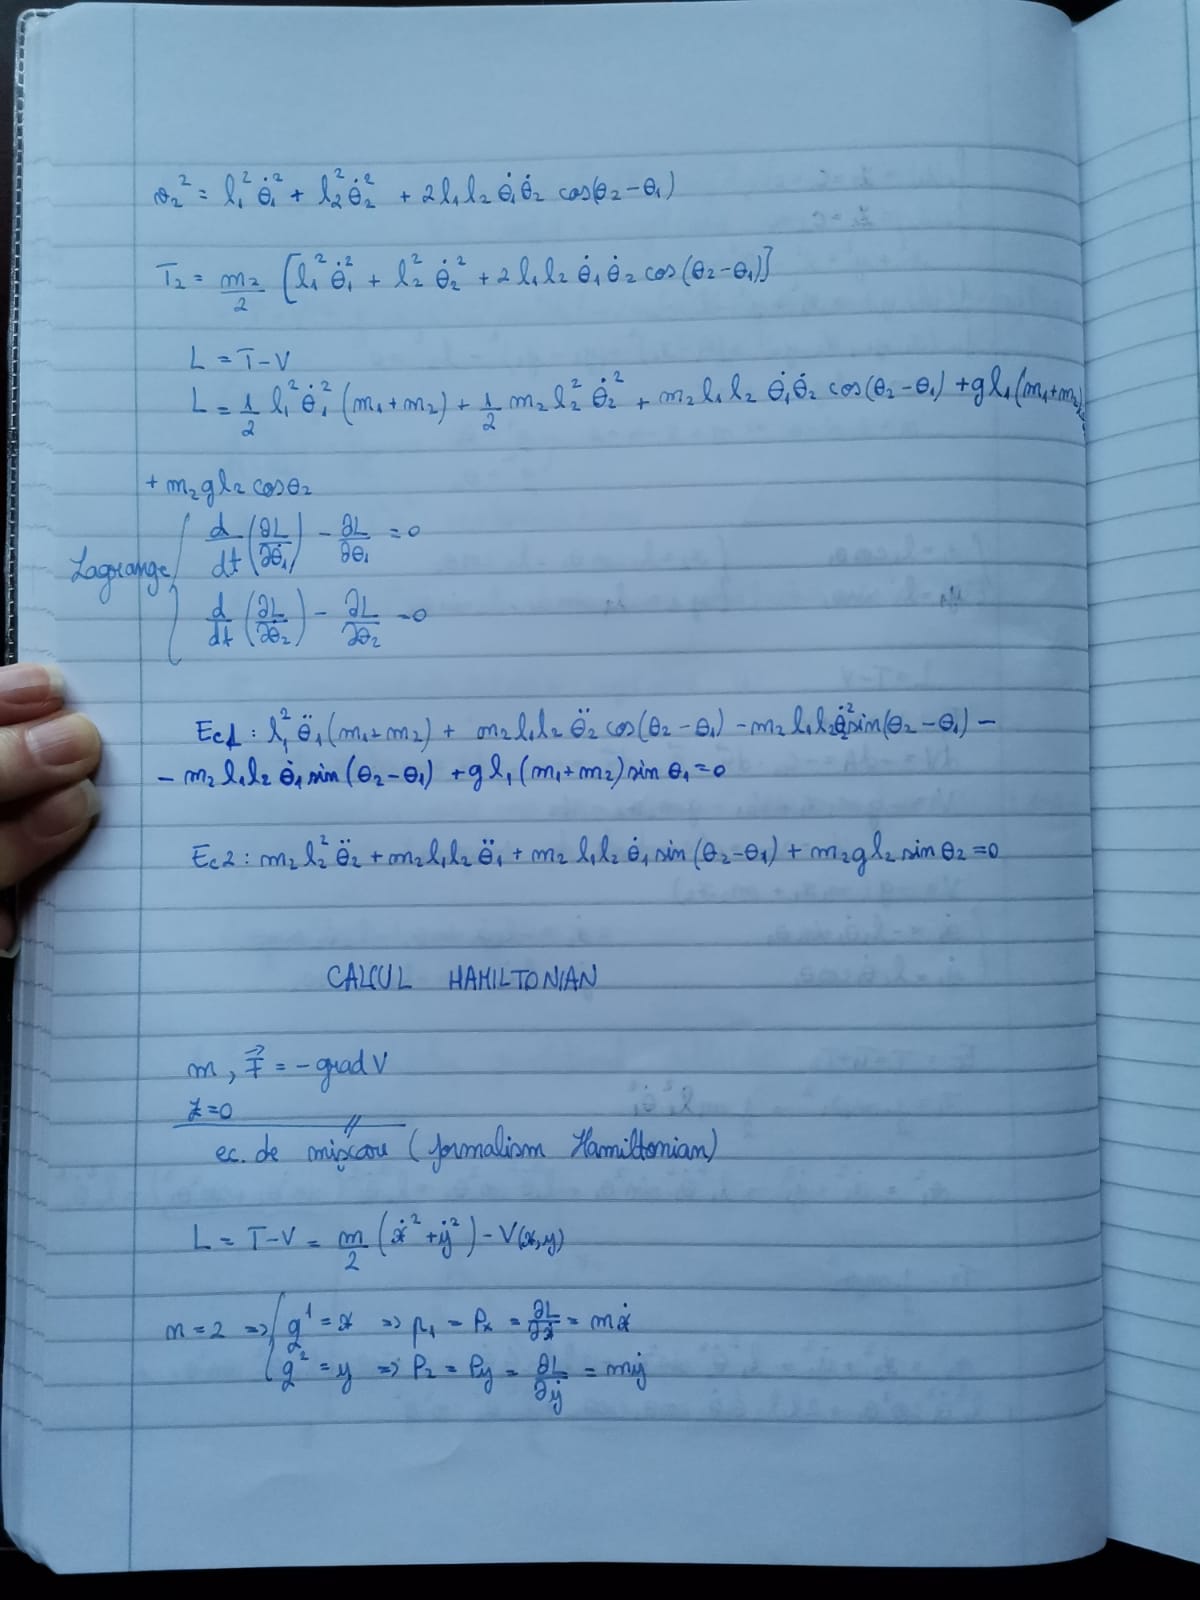 v₂² = l₁² θ̇₁² + l₂² θ̇₂² + 2 l₁ l₂ θ̇₁ θ̇₂ cos(θ₂ - θ₁)
T₂ = m₂/2 [l₁² θ̇₁² + l₂² θ̇₂² + 2 l₁ l₂ θ̇₁ θ̇₂ cos(θ₂ - θ₁)]
L = T - V
L = 1/2 l₁² θ̇₁² (m₁ + m₂) + 1/2 m₂ l₂² θ̇₂² + m₂ l₁ l₂ θ̇₁ θ̇₂ cos(θ₂ - θ₁) + g l₁ (m₁ + m₂)
+ m₂ g l₂ cos θ₂
Lagrange { d/dt (∂L/∂θ̇₁) - ∂L/∂θ₁ = 0
d/dt (∂L/∂θ̇₂) - ∂L/∂θ₂ = 0
Ec1 : l₁² θ̈₁ (m₁ + m₂) + m₂ l₁ l₂ θ̈₂ cos(θ₂ - θ₁) - m₂ l₁ l₂ θ̇₂² sin(θ₂ - θ₁) -
- m₂ l₁ l₂ θ̇₁ sin(θ₂ - θ₁) + g l₁ (m₁ + m₂) sin θ₁ = 0
Ec2 : m₂ l₂² θ̈₂ + m₂ l₁ l₂ θ̈₁ + m₂ l₁ l₂ θ̇₁ sin(θ₂ - θ₁) + m₂ g l₂ sin θ₂ = 0
CALCUL HAMILTONIAN
m, F⃗ = - grad V
z = 0
ec. de mișcare (formalism Hamiltonian)
L = T - V = m/2 (ẋ² + ẏ²) - V(x, y)
n = 2 => { q¹ = x => p₁ = Px = ∂L/∂ẋ = mẋ
q² = y => P₂ = Py = ∂L/∂ẏ = mẏ